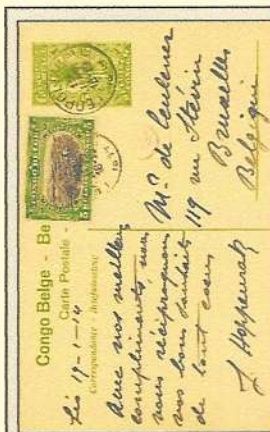 Congo Belge - Be
Carte Postale -
Correspondance -
Léo 19-1-14
Avec nos meilleurs
compliments, nous
vous réciproquons
vos bons souhaits
de tout cœur
J.
Mr. de Ceulener
119 rue Stévin
Bruxelles
Belgique